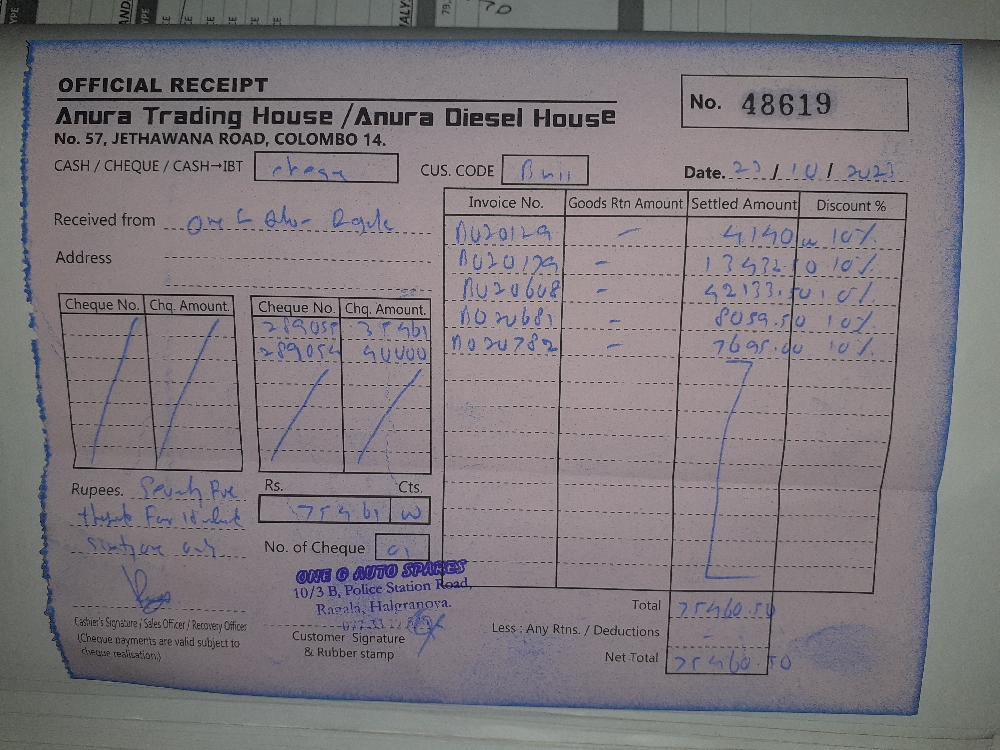 OFFICIAL RECEIPT
Anura Trading House / Anura Diesel House
No. 57, JETHAWANA ROAD, COLOMBO 14.
No. 48619
CASH / CHEQUE / CASH→IBT
CUS. CODE
Date. 23 / 10 / 2023
Received from One G Auto
Address
Invoice No. Goods Rtn Amount Settled Amount Discount %
– 4140 10%
– 13432.50 10%
– 42133.50 10%
– 8059.50 10%
– 7695.00 10%
Cheque No. Chq. Amount.
Cheque No. Chq. Amount.
289055 35461
289054 40000
Rupees. Seventy Five
thousand Four Hundred
Sixty one only
Rs. Cts.
75461
No. of Cheque
ONE G AUTO SPARES
10/3 B, Police Station Road,
Ragala, Halgranoya.
Cashier's Signature / Sales Officer / Recovery Offices
(Cheque payments are valid subject to
cheque realisation.)
Customer Signature
& Rubber stamp
Total 75460.50
Less : Any Rtns. / Deductions –
Net Total 75460.50